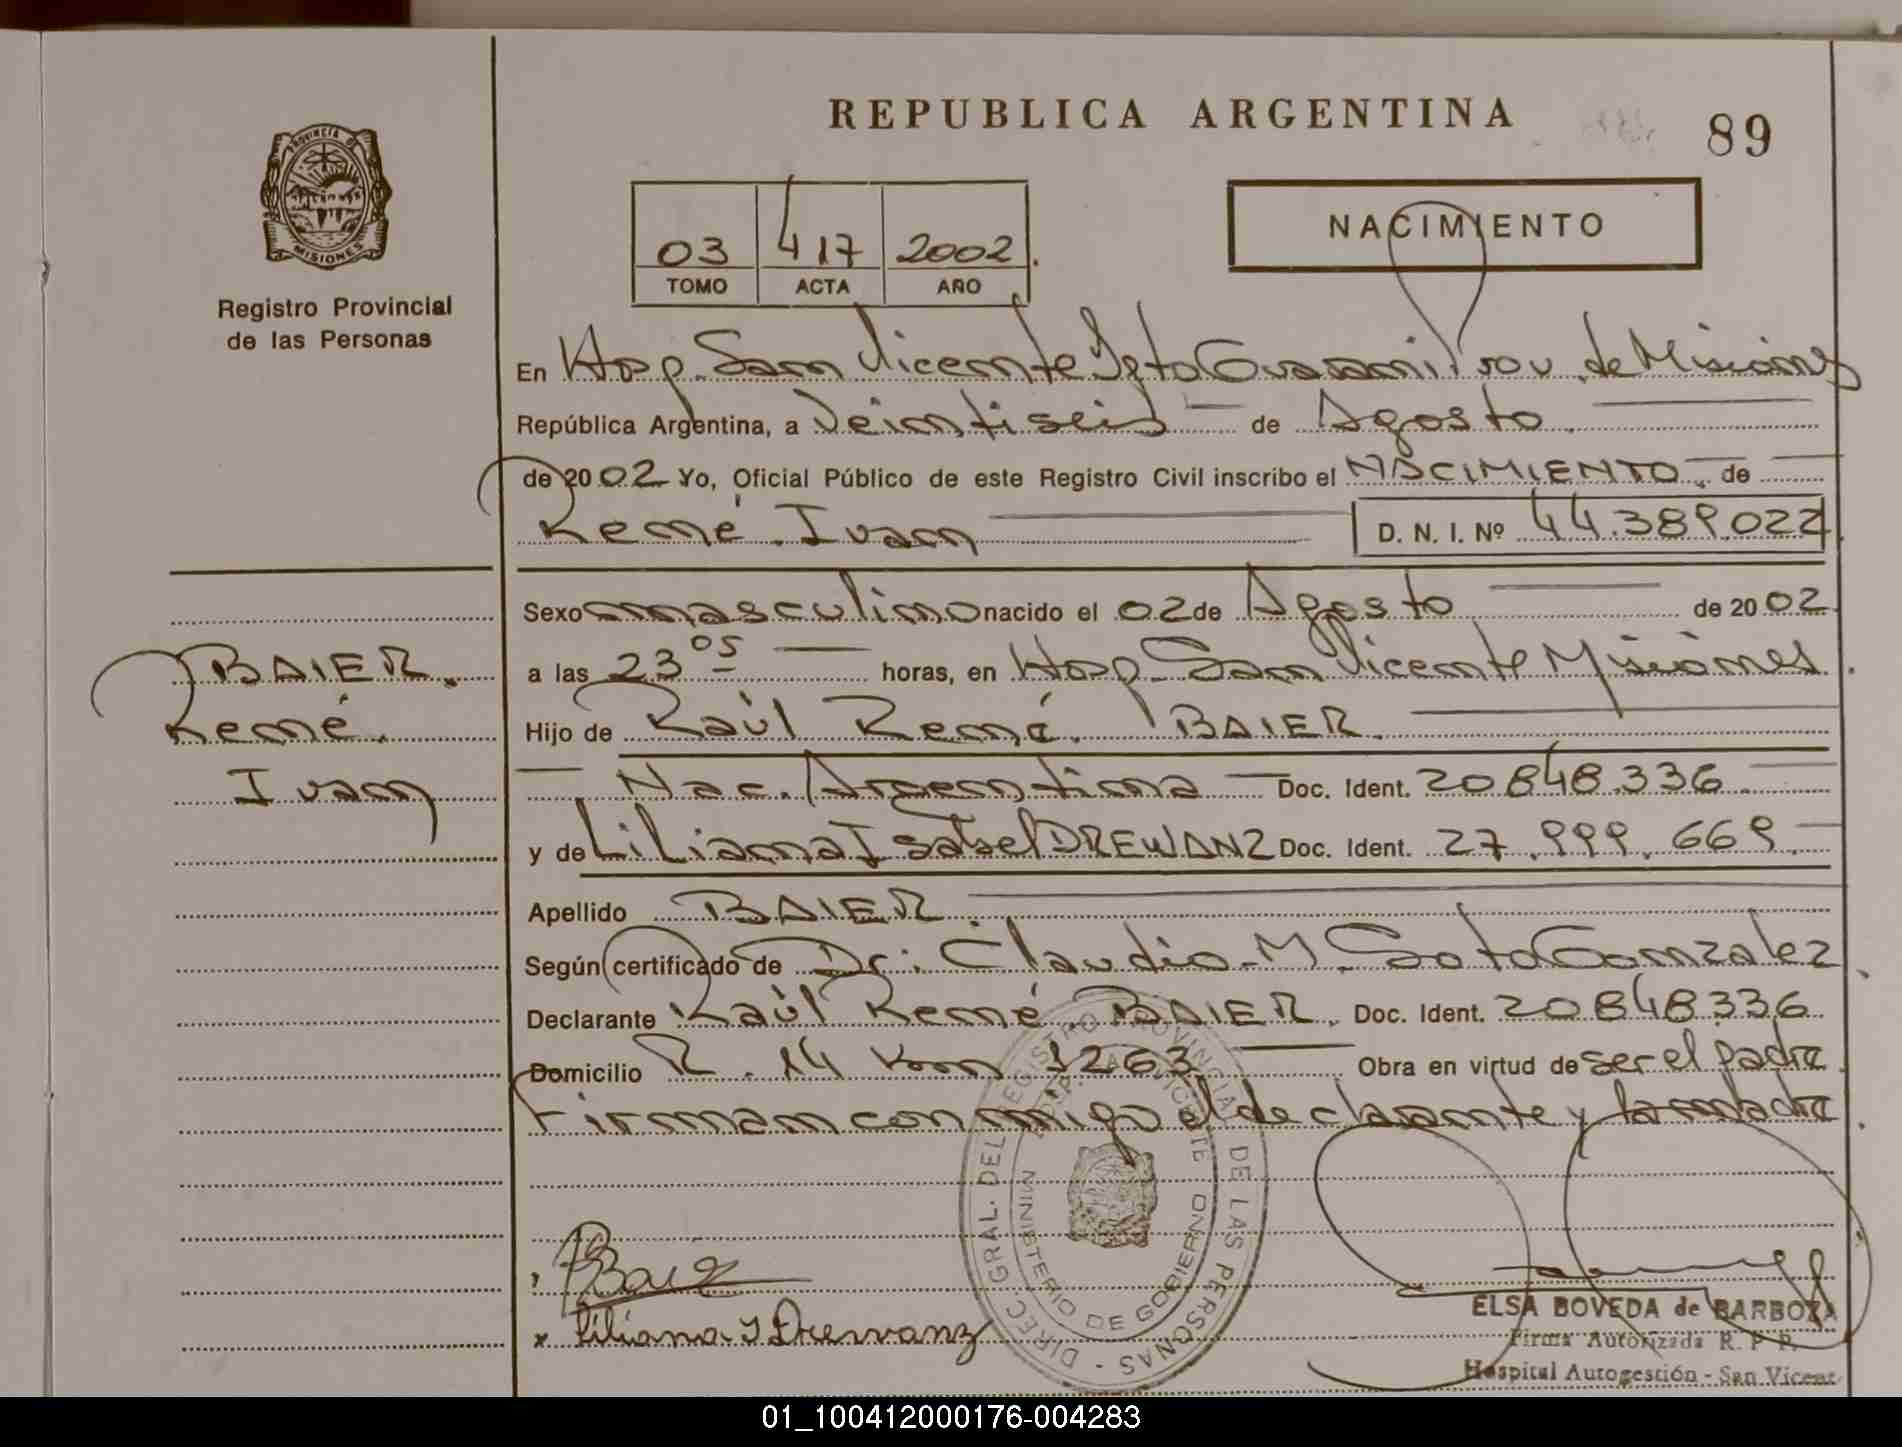 REPUBLICA ARGENTINA
89
PROVINCIA DE
MISIONES
Registro Provincial
de las Personas
03 417 2002
TOMO ACTA AÑO
NACIMIENTO
En Hosp. San Vicente Dpto Guarani Prov. de Misiones
República Argentina, a Veintiseis de Agosto
de 2002 Yo, Oficial Público de este Registro Civil inscribo el NACIMIENTO de
René Ivan D. N. I. Nº 44.389.022
Sexo masculino nacido el 02 de Agosto de 2002
BAIER.
René
Ivan
a las 23 05 horas, en Hosp. San Vicente Misiones
Hijo de Raúl René BAIER.
Nac. Argentina Doc. Ident. 20848.336
y de Liliana Isabel DREWANZ Doc. Ident. 27.999.669
Apellido BAIER
Según certificado de Dr. Claudio M. Soto Gonzalez
Declarante Raúl René BAIER. Doc. Ident. 20848336
Domicilio R. 14 Km 1263 Obra en virtud de ser el padre
Firman conmigo el declarante y la madre
DIREC. GRAL. DEL REGISTRO PROVINCIAL DE LAS PERSONAS
MINISTERIO DE GOBIERNO
x Liliana I Drewanz
ELSA BOVEDA de BARBOZA
Firma Autorizada R. P. P.
Hospital Autogestión - San Vicente
01_100412000176-004283